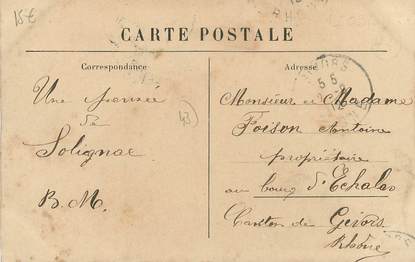 15€
CARTE POSTALE
Correspondance
Adresse
Une pensée
de
Solignac
B. M.
43
Monsieur et Madame
Foison Antoine
propriétaire
au bourg d'Echalas
Canton de Givors
Rhône